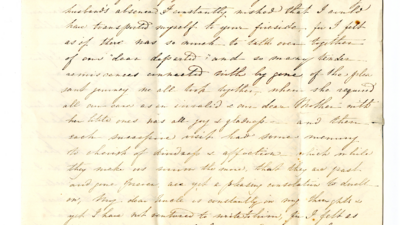 husband's absence I constantly wished that I could
have transported myself to your fireside, for I felt
as if there was so much to talk over together
of our dear departed; and so many tender
reminiscences connected with by gone of the plea
sant journey we all took together when she required
all our care as an invalid & our dear Brother with
her little ones was all joy & and
each successive visit had some memory
to cherish of kindness & affection which while
they make us mourn the more, that they are past
and gone forever are yet a pleasing consolation to dwell
on, My dear is constantly in my thoughts &
yet I have not ventured to write to him, for I felt as